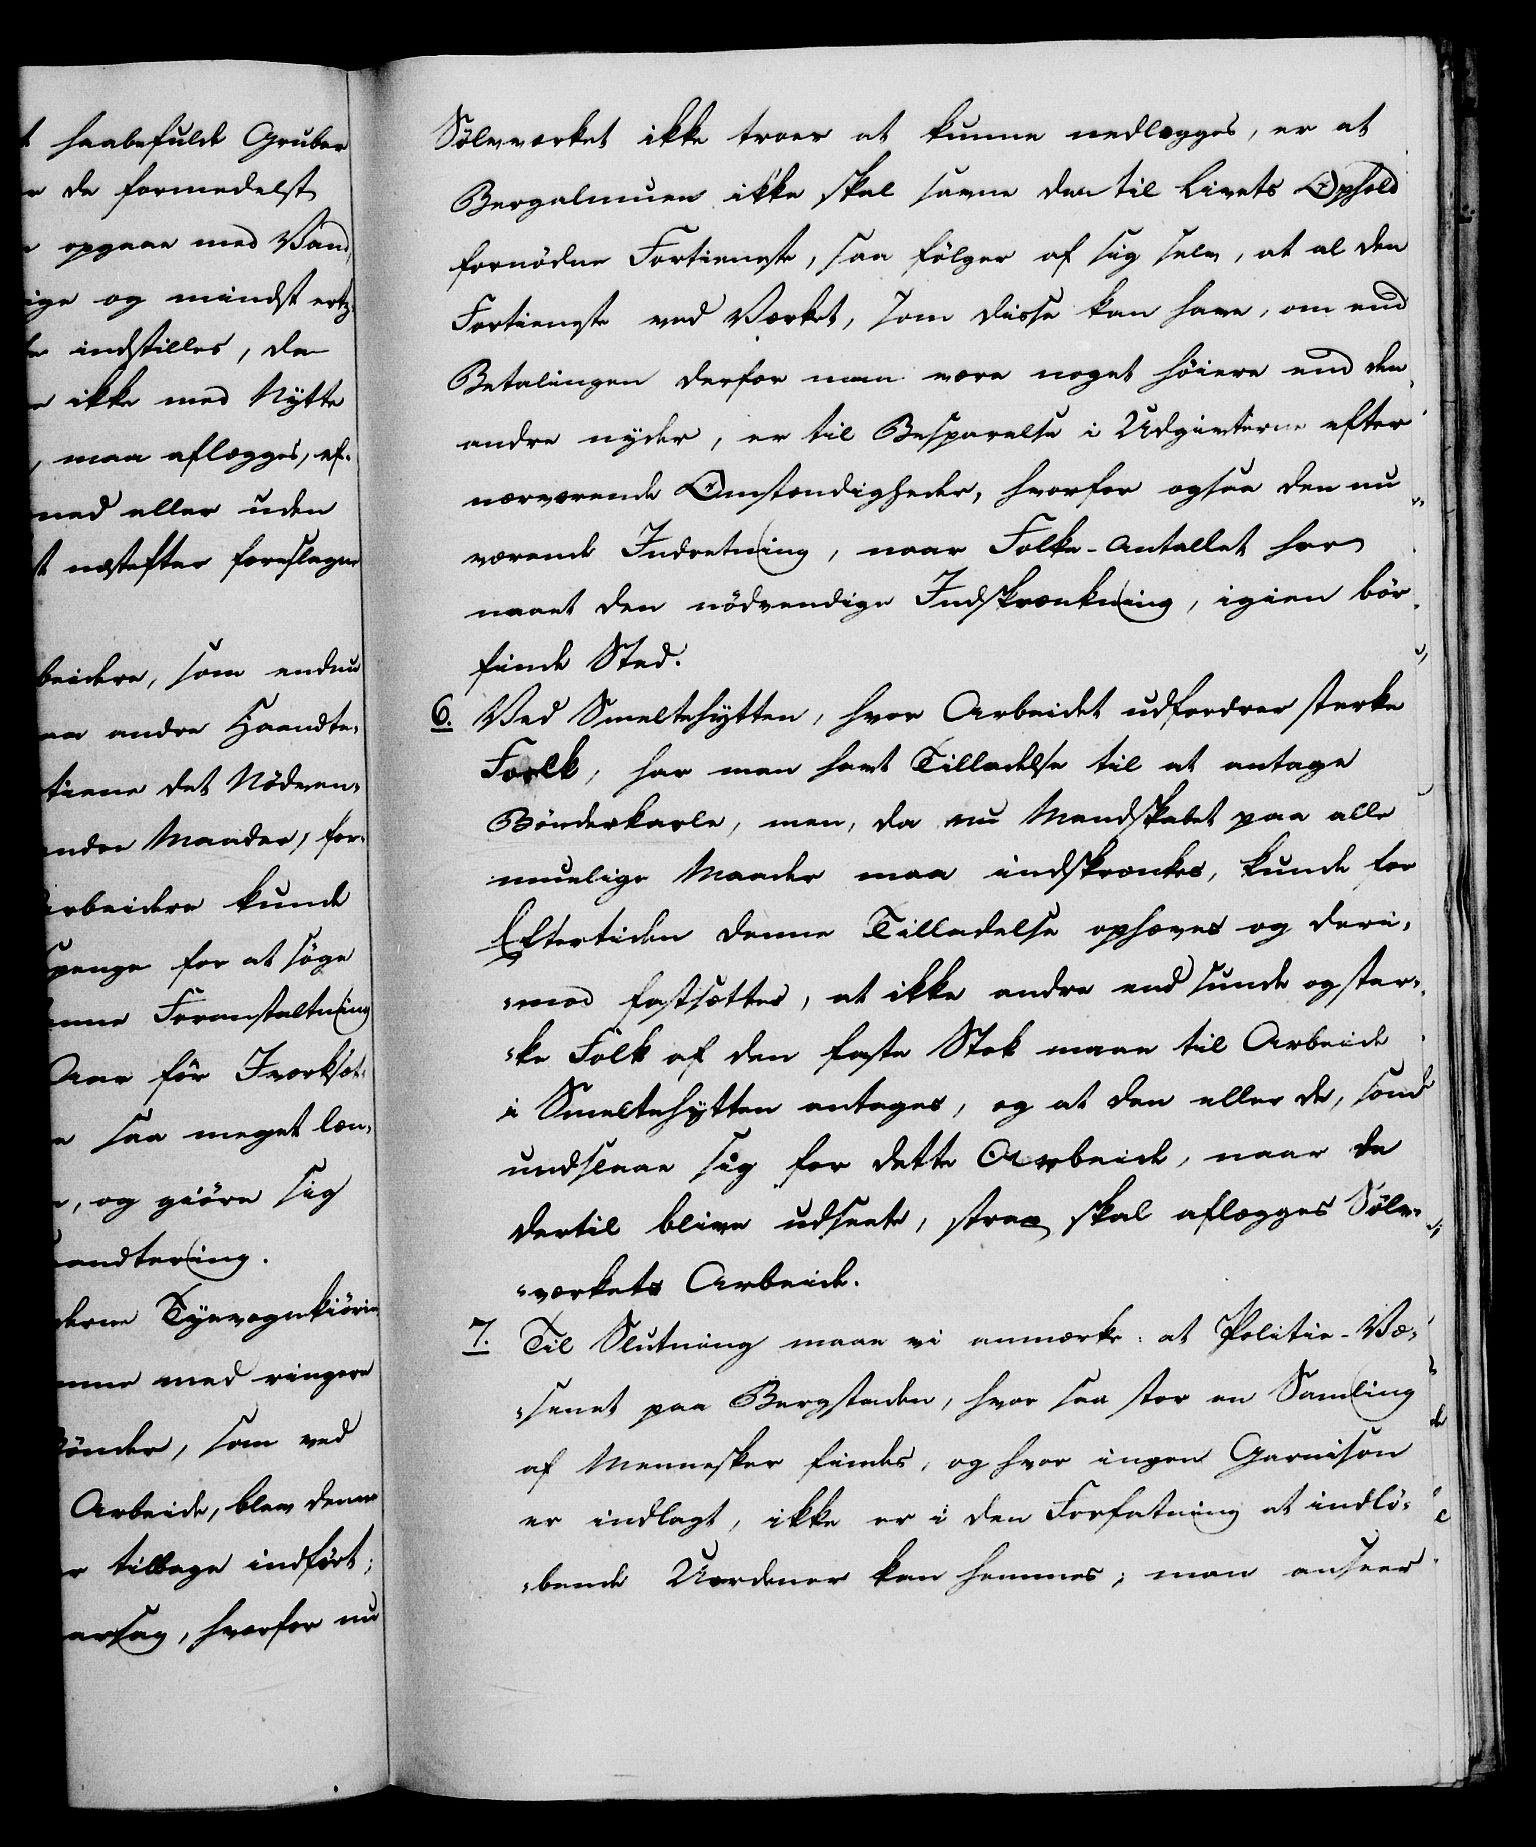 t haabefulde Gruber
r de formedelst
opgaae med Vand,
ige og mindst ertz-
indstilles, da
ikke med Nÿtte
, maa aflægges, ef-
med eller uden
st næstefter foreslagne
beidere, som endnu
aa andre Haandte-
tiene det Nödven-
andre Maader, for-
Arbeidere kunde
penge for at söge
enne Foranstaltning
Aar för Iværksæt-
saa meget læn-
, og giöre sig
aandtering.
derne Tÿevognkiörin
med ringere
Bönder, som ved
Arbeide, blev denne
r tilbage indfört;
arsag, hvorfor nu
Sölvværket ikke troer at kunne nedlægges, er at
Bergalmuen ikke skal savne den til Livets Ophold
fornödne Fortieneste, saa fölger af sig selv, at al den
Fortieneste ved Værket, som disse kan have, om end
Betalingen derfor maa være noget höiere end den,
andre nyder, er til Besparelse i Udgivterne efter
nærværende Omstændigheder, hvorfor ogsaa den nu
værende Indretning, naar Folke-Antallet har
naaet den nödvendige Indskrænkning, igien bör
finde Sted.
6. Ved Smeltehÿtten, hvor Arbeidet udfordrer stærke
Folk, har man havt Tilladelse til at antage
Bönderkarle, men, da nu Mandskabet paa alle
muelige Maader maa indskrænkes, kunde for
Eftertiden denne Tilladelse ophæves og deri-
-mod fastsættes, at ikke andre end sunde og stær-
-ke Folk af den faste Stok maae til Arbeide
i Smeltehÿtten antages, og at den eller de, som
undslaae sig for dette Arbeide, naar de
dertil blive udseete, strax skal aflægges Sölv-
-værkets Arbeide.
7. Til Slutning maae vi anmærke: at Politie-Væ-
-senet paa Bergstaden, hvor saa stor en Samling
af Mennesker findes, og hvor ingen Garnison
er indlagt, ikke er i den Forfatning at indlö-
-bende Uordener kan hemmes; man anseer